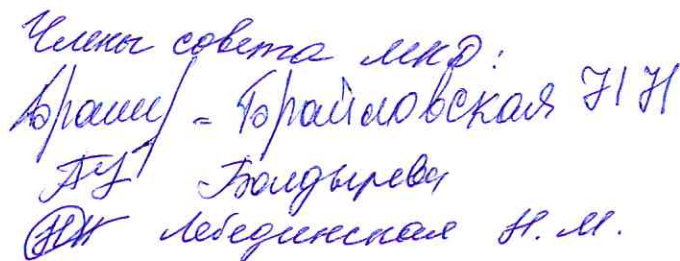 Члены совета МКД:
- Брайловская Н Н
- Болдырева
Лебединская Н. М.